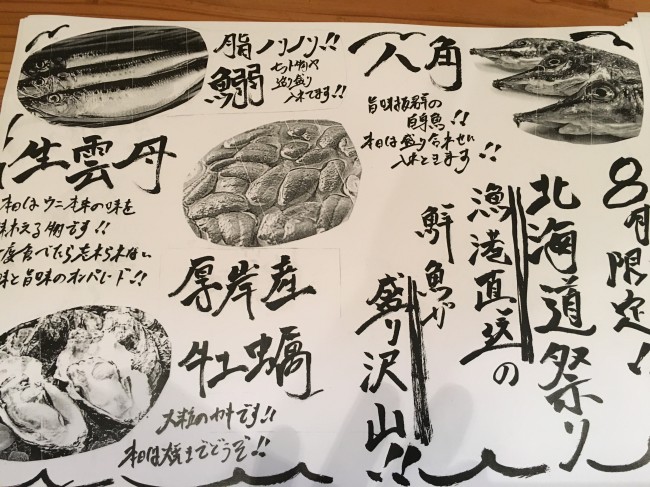 8月限定!!
北海道祭り
漁港直送の
鮮魚が
盛り沢山!!
八角
旨味抜群の
白身魚!!
本日は盛り合わせに
入ってます!!
脂ノリノリ!!
鰯
セット物や
盛り盛り
入れてます!!
生雲丹
本日はウニ本来の味を
味わえる物です!!
一度食べたら忘れられない
味と旨味のオンパレード!!
厚岸産
牡蠣
大粒のカキです!!
本日は焼きでどうぞ!!